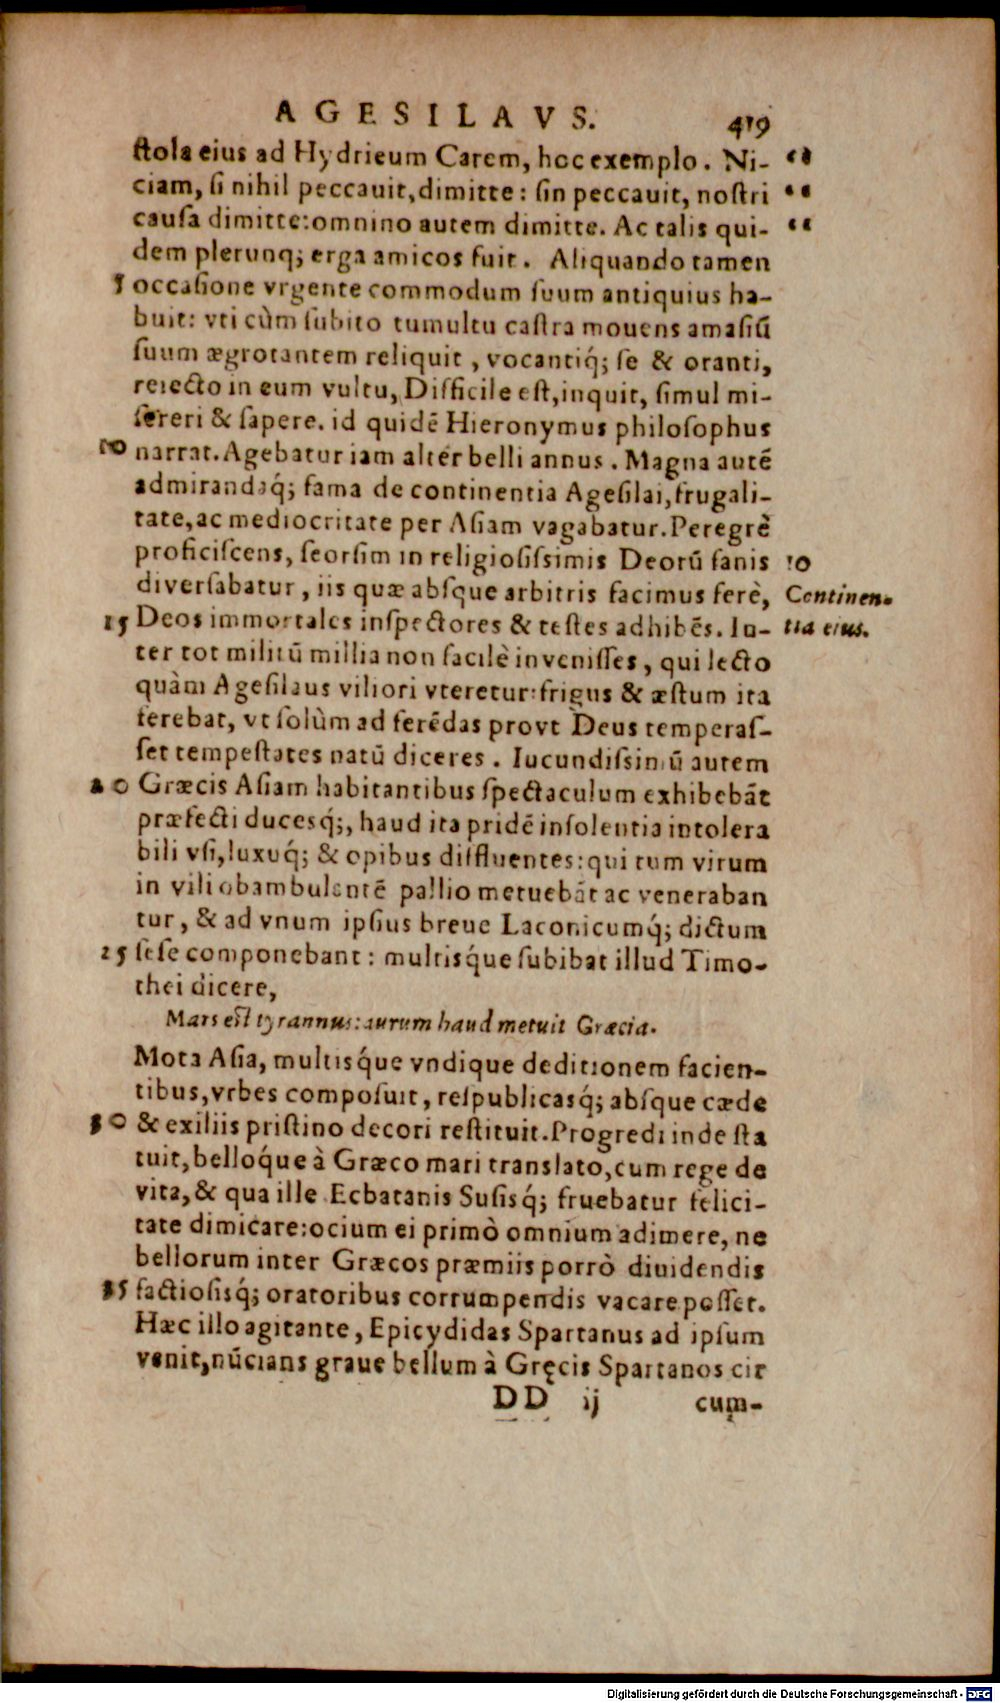 AGESILAVS. 419
ſtola eius ad Hydrieum Carem, hoc exemplo. Ni- “
ciam, ſi nihil peccauit, dimitte: ſin peccauit, noſtri “
cauſa dimitte: omnino autem dimitte. Ac talis qui- “
dem plerunq; erga amicos fuit. Aliquando tamen
5 occaſione vrgente commodum ſuum antiquius ha-
buit: vti cùm ſubito tumultu caſtra mouens amaſiū
ſuum ægrotantem reliquit, vocantiq́; ſe & oranti,
reiecto in eum vultu, Difficile eſt, inquit, ſimul mi-
ſereri & ſapere. id quidē Hieronymus philoſophus
10 narrat. Agebatur iam alter belli annus. Magna autē
admirandaq́; fama de continentia Ageſilai, frugali-
tate, ac mediocritate per Aſiam vagabatur. Peregrè
proficiſcens, ſeorſim in religioſiſsimis Deorū fanis 10
diverſabatur, iis quæ abſque arbitris facimus ferè, Continen-
15 Deos immortales inſpectores & teſtes adhibēs. In- tia eius.
ter tot militū millia non facilè inveniſſes, qui lecto
quàm Ageſilaus viliori vteretur: frigus & æſtum ita
ferebat, vt ſolùm ad ferēdas provt Deus temperaſ-
ſet tempeſtates natū diceres. Iucundiſſimū autem
20 Græcis Aſiam habitantibus ſpectaculum exhibebāt
præfecti ducesq́;, haud ita pridē inſolentia intolera
bili vſi, luxuq́; & opibus diffluentes: qui tum virum
in vili obambulantē pallio metuebāt ac veneraban
tur, & ad vnum ipſius breue Laconicumq́; dictum
25 ſeſe componebant: multisq́ue ſubibat illud Timo-
thei dicere,
Mars eſt tyrannus: aurum haud metuit Græcia.
Mota Aſia, multisq́ue vndique deditionem facien-
tibus, vrbes compoſuit, reſpublicasq́; abſque cæde
30 & exiliis priſtino decori reſtituit. Progredi inde ſta
tuit, belloq́ue à Græco mari translato, cum rege de
vita, & qua ille Ecbatanis Suſisq́; fruebatur felici-
tate dimicare: ocium ei primò omnium adimere, ne
bellorum inter Græcos præmiis porrò diuidendis
35 factioſisq́; oratoribus corrumpendis vacare poſſet.
Hæc illo agitante, Epicydidas Spartanus ad ipſum
venit, nūcians graue bellum à Gręcis Spartanos cir
DD ij cum-
Digitalisierung gefördert durch die Deutsche Forschungsgemeinschaft - DFG